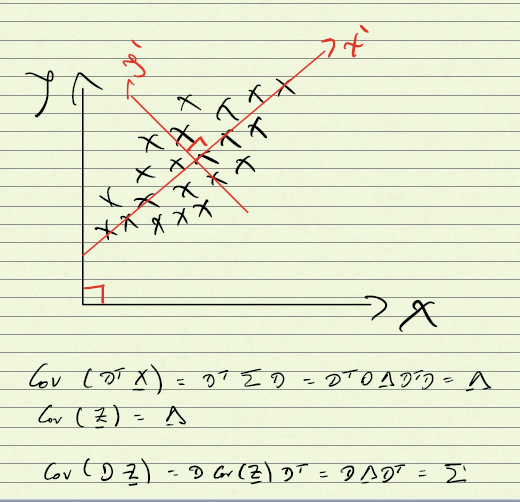 y'
x'
y
x
Cov (D^T X) = D^T Σ D = D^T D Λ D^T D = Λ
Cov (Z) = Λ
Cov (D Z) = D Cov(Z) D^T = D Λ D^T = Σ